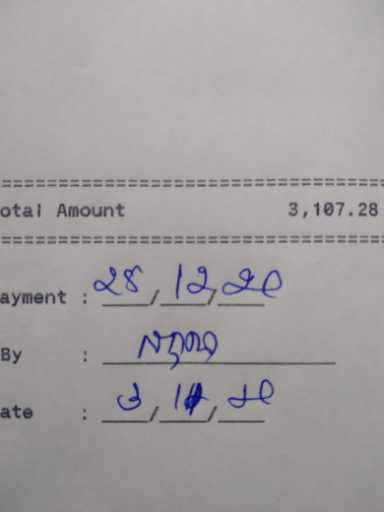 otal Amount 3,107.28
ayment : 28/12/20
By :
ate : 3/